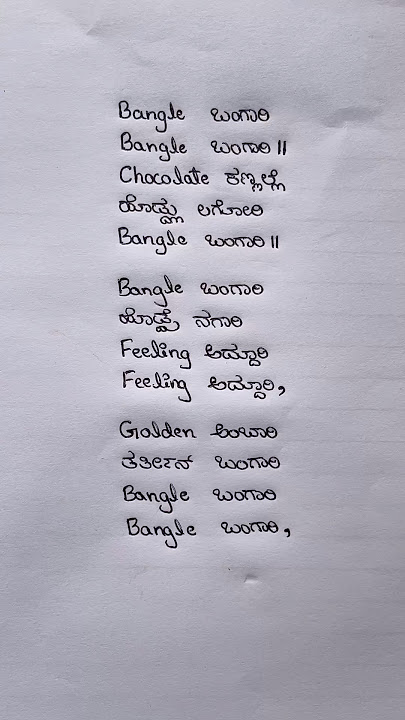 Bangle ಬಂಗಾರಿ
Bangle ಬಂಗಾರಿ ||
Chocolate ಕಣ್ಣಲ್ಲೆ
ಹೊಡ್ಲು ಲಗೋರಿ
Bangle ಬಂಗಾರಿ ||
Bangle ಬಂಗಾರಿ
ಹೊಡ್ದ್ರೆ ನಗಾರಿ
Feeling ಅದ್ದೂರಿ
Feeling ಅದ್ದೂರಿ,
Golden ಅಂಬಾರಿ
ತರ್ತೀನ್ ಬಂಗಾರಿ
Bangle ಬಂಗಾರಿ
Bangle ಬಂಗಾರಿ,